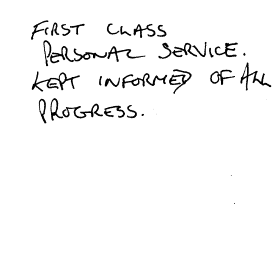 FIRST CLASS
PERSONAL SERVICE.
KEPT INFORMED OF ALL
PROGRESS.